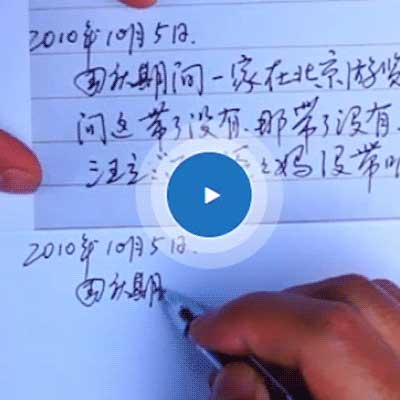 2010年10月5日.
国庆期间一家在北京游览
问这带了没有.那带了没有.
妈没带
2010年10月5日.
国庆期